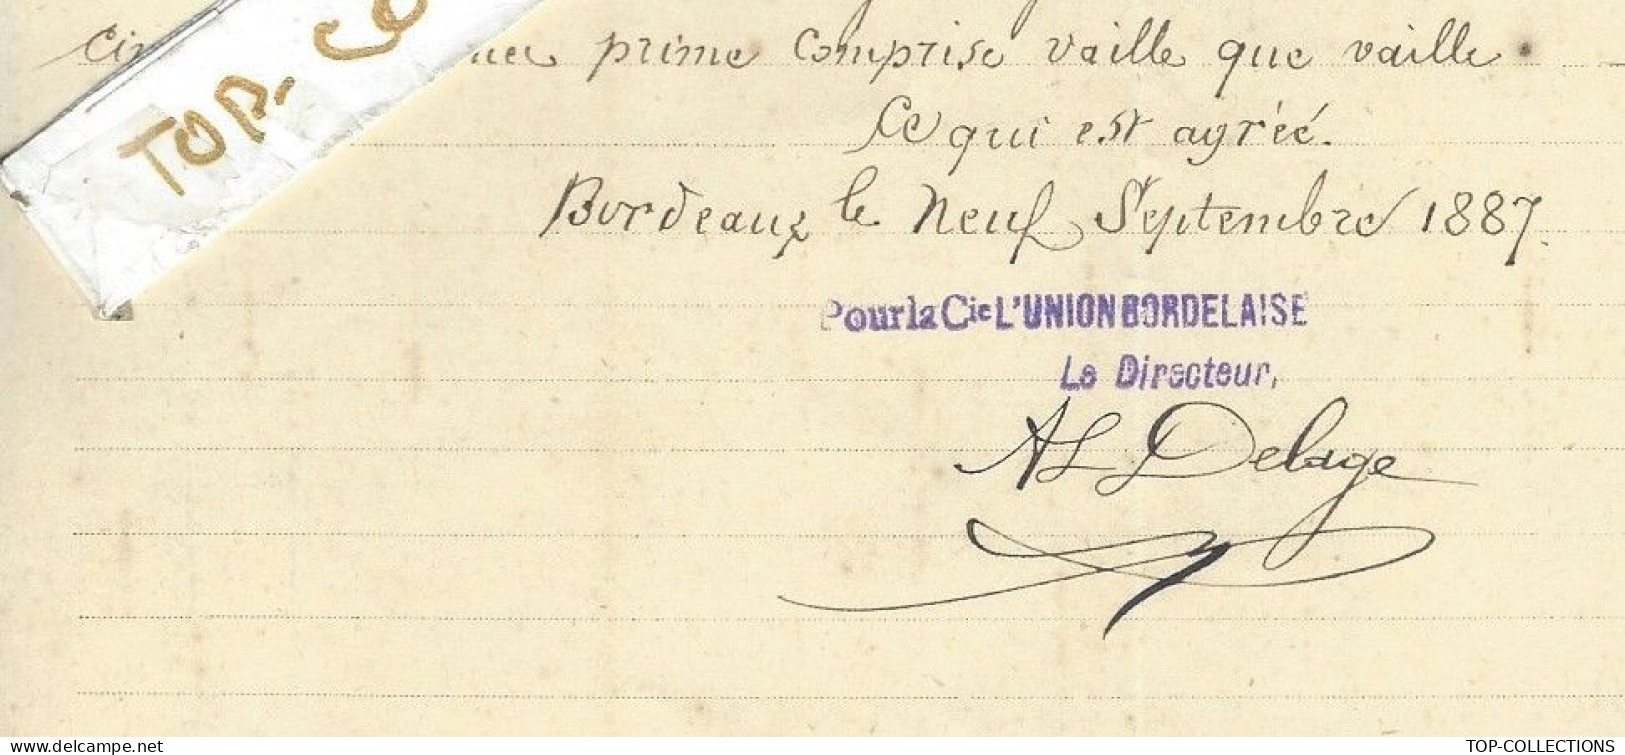 prime comprise vaille que vaille.
Ce qui est agréé.
Bordeaux le Neuf Septembre 1887.
Pour la Cie L'UNION BORDELAISE
Le Directeur,
AL Delage
TOP-CO
www.delcampe.net
TOP-COLLECTIONS